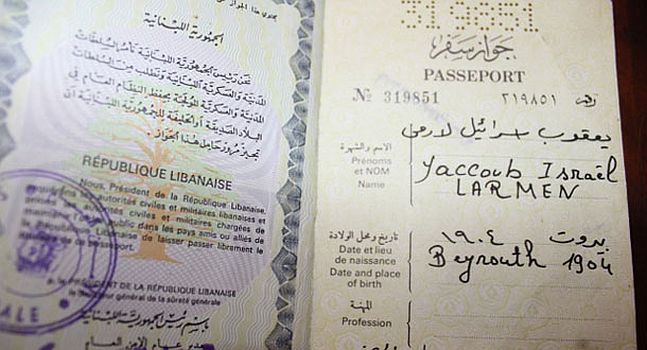 يحتوي هذا الجواز
الجمهورية اللبنانية
نحن رئيس الجمهورية اللبنانية نأمر السلطات
المدنية والعسكرية اللبنانية ونطلب من السلطات
البلاد الصديقة أو الحليفة للجمهورية اللبنانية أن
هذا الجواز.
RÉPUBLIQUE LIBANAISE
Nous, Président de la République Libanaise,
autorités civiles et militaires libanaises et
autorités civiles et militaires chargées de
public dans les pays amis ou alliés de
République Libanaise de laisser passer librement le
de passeport.
LE PRÉSIDENT DE LA RÉPUBLIQUE LIBANAISE
général de la sûreté générale
باسم رئيس الجمهورية اللبنانية
مدير عام الأمن العام
ALE
319851
جواز سفر
PASSEPORT
№ 319851 ٣١٩٨٥١ رقم
يعقوب اسرائيل لارمن
الاسم والشهرة
Prénoms
et NOM
Name
Yaccoub Israël
LARMEN
تاريخ ومحل الولادة
Date et lieu
de naissance
Date and place
of birth
بيروت ١٩٠٤
Beyrouth 1904
المهنة
Profession